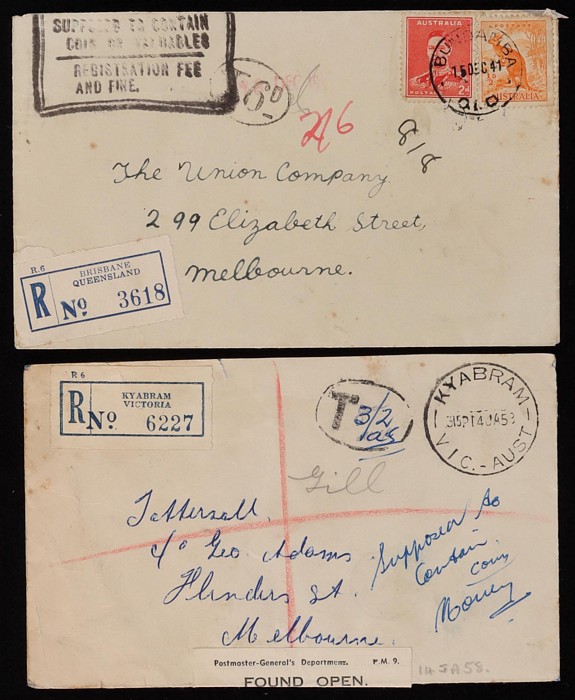 SUPPOSED TO CONTAIN
COIN OR VALUABLES
REGISTRATION FEE
AND FINE.
6D
2/6
8/8
AUSTRALIA
POSTAGE
2D
BUNDAMBA
15DEC 41
QLD
AUSTRALIA
The Union Company
299 Elizabeth Street,
Melbourne.
R.6
BRISBANE
QUEENSLAND
R No 3618
R 6
KYABRAM
VICTORIA
R No 6227
T 3/2
KYABRAM
VIC.-AUST
Gill
Tattersall.
c/o Geo. Adams
Flinders St.
Melbourne.
Supposed to
Contain
Money
Postmaster-General's Department. P.M. 9.
FOUND OPEN.
14 JA 58.